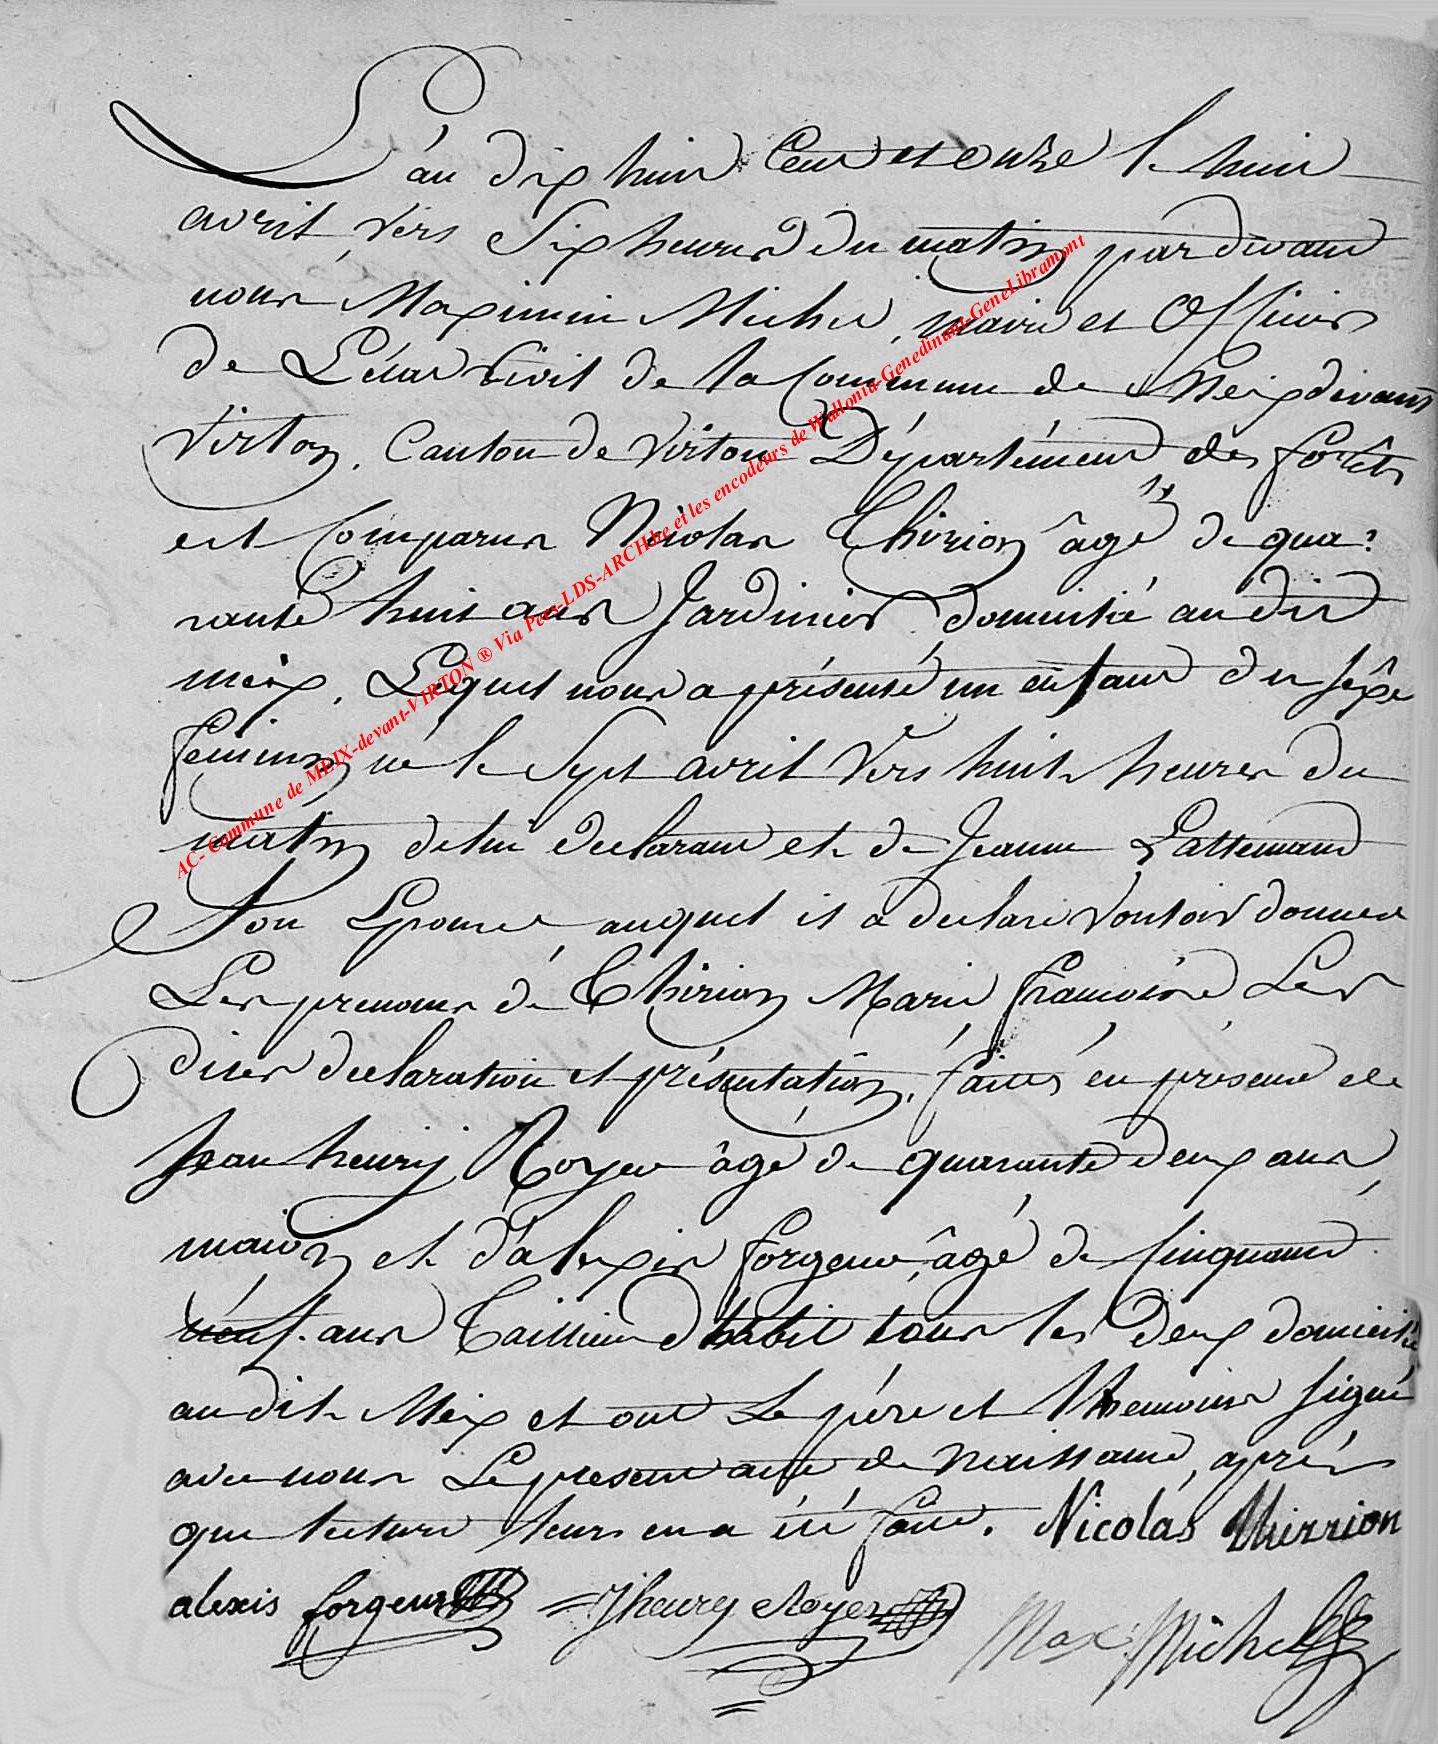 L'an dix huit Cent et onze le huit
avril vers Six heures du matin par devant
nous Maximin Michel, maire et Officier
de L'état Civil de la Commune de Meix devant
Virton, Canton de Virton Département des forêts
est Comparus Nicolas Thirion âgé de qua:
rante huit ans Jardinier domicilié au dit
meix, Lequel nous a présenté un enfant du sêxe
féminin né le Sept avril vers huit heures du
matin de lui declarant et de Jeanne Lallemand
Son Epouse, auquel il a declaré vouloir donner
Les prenoms de Thirion Marie françoise Les
dites declaration et présentation, faites en présence de
Jean henry Royer âgé de quarante deux ans,
maçon et d'alexis forgeur, âgé de Cinquante
neuf ans Tailleur d'habit tous les deux domicilié
audit Meix et ont Le père et themoins signé
avec nous Le present acte de Naissance, après
que lecture leurs en a été faite. Nicolas thirrion
alexis forgeur J henry Royer
Max: Michel
AC- Commune de MEIX-devant-VIRTON ® Via Pers-LDS-ARCH.be et les encodeurs de Wallonia-Genedinant-GeneLibramont